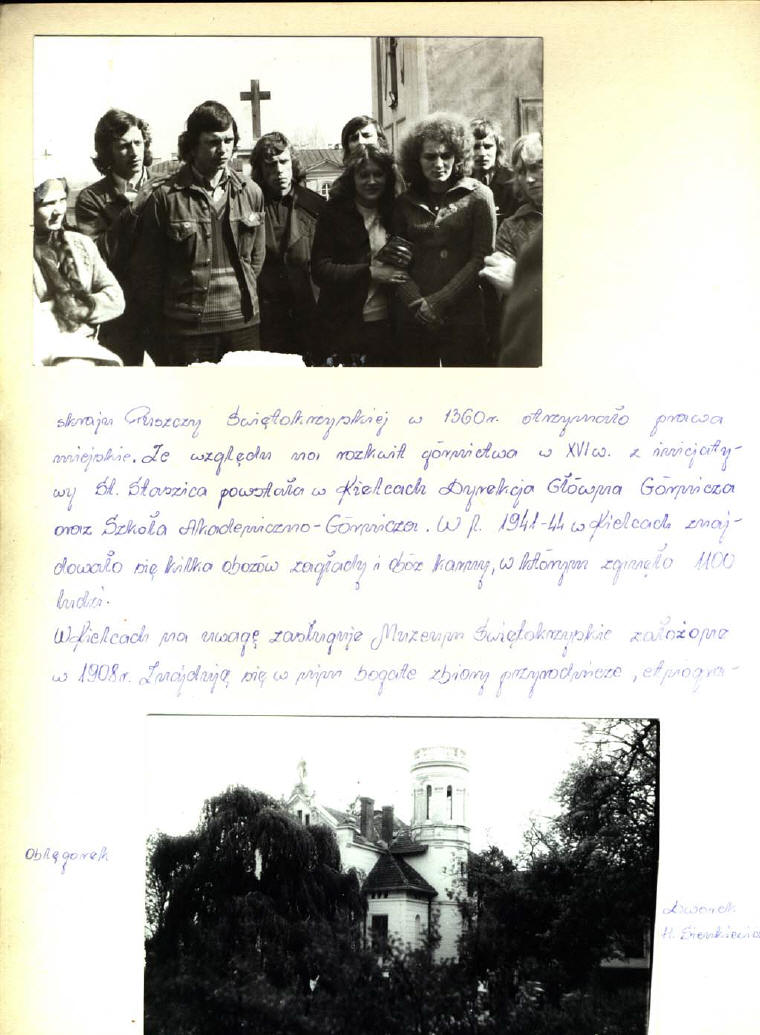 skraju Puszczy Świętokrzyskiej w 1360r. otrzymało prawa
miejskie. Ze względu na rozkwit górnictwa w XVI w. z inicjaty-
wy St. Staszica powstała w Kielcach Dyrekcja Główna Górnicza
oraz Szkoła Akademiczno-Górnicza. W l. 1941-44 w Kielcach znaj-
dowało się kilka obozów zagłady i obóz karny, w którym zginęło 1100
ludzi.
W Kielcach na uwagę zasługuje Muzeum Świętokrzyskie założone
w 1908r. Znajdują się w nim bogate zbiory przyrodnicze, etnogra-
Oblęgorek
dworek
H. Sienkiewicz